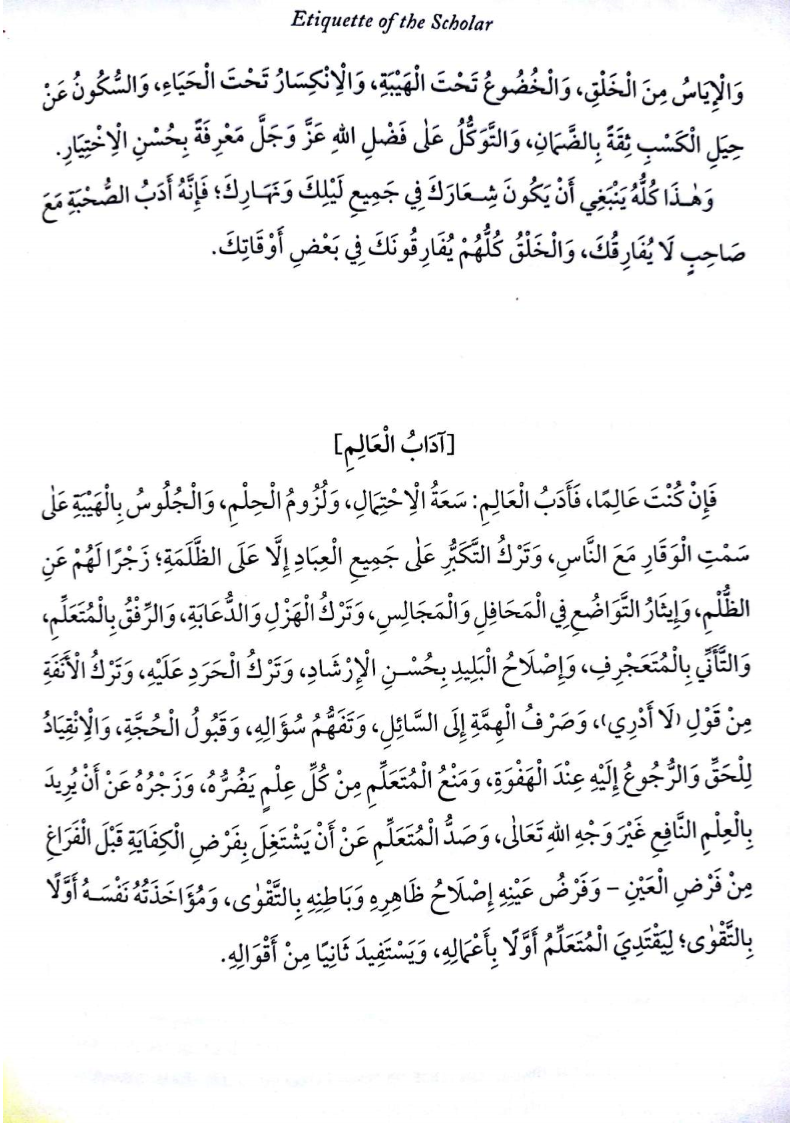 Etiquette of the Scholar
وَالْإِيَاسُ مِنَ الْخَلْقِ، وَالْخُضُوعُ تَحْتَ الْهَيْبَةِ، وَالْاِنْكِسَارُ تَحْتَ الْحَيَاءِ، وَالسُّكُونُ عَنْ
حِيَلِ الْكَسْبِ ثِقَةً بِالضَّمَانِ، وَالتَّوَكُّلُ عَلٰى فَضْلِ اللهِ عَزَّ وَجَلَّ مَعْرِفَةً بِحُسْنِ الْاِخْتِيَارِ.
وَهٰذَا كُلُّهُ يَنْبَغِي أَنْ يَكُونَ شِعَارَكَ فِي جَمِيعِ لَيْلِكَ وَنَهَارِكَ؛ فَإِنَّهُ أَدَبُ الصُّحْبَةِ مَعَ
صَاحِبٍ لَا يُفَارِقُكَ، وَالْخَلْقُ كُلُّهُمْ يُفَارِقُونَكَ فِي بَعْضِ أَوْقَاتِكَ.
[آدَابُ الْعَالِمِ]
فَإِنْ كُنْتَ عَالِمًا، فَأَدَبُ الْعَالِمِ: سَعَةُ الْاِحْتِمَالِ، وَلُزُومُ الْحِلْمِ، وَالْجُلُوسُ بِالْهَيْبَةِ عَلٰى
سَمْتِ الْوَقَارِ مَعَ النَّاسِ، وَتَرْكُ التَّكَبُّرِ عَلٰى جَمِيعِ الْعِبَادِ إِلَّا عَلَى الظَّلَمَةِ؛ زَجْرًا لَهُمْ عَنِ
الظُّلْمِ، وَإِيثَارُ التَّوَاضُعِ فِي الْمَحَافِلِ وَالْمَجَالِسِ، وَتَرْكُ الْهَزْلِ وَالدُّعَابَةِ، وَالرِّفْقُ بِالْمُتَعَلِّمِ،
وَالتَّأَنِّي بِالْمُتَعَجْرِفِ، وَإِصْلَاحُ الْبَلِيدِ بِحُسْنِ الْإِرْشَادِ، وَتَرْكُ الْحَرَدِ عَلَيْهِ، وَتَرْكُ الْأَنَفَةِ
مِنْ قَوْلِ (لَا أَدْرِي)، وَصَرْفُ الْهِمَّةِ إِلَى السَّائِلِ، وَتَفَهُّمُ سُؤَالِهِ، وَقَبُولُ الْحُجَّةِ، وَالْاِنْقِيَادُ
لِلْحَقِّ وَالرُّجُوعُ إِلَيْهِ عِنْدَ الْهَفْوَةِ، وَمَنْعُ الْمُتَعَلِّمِ مِنْ كُلِّ عِلْمٍ يَضُرُّهُ، وَزَجْرُهُ عَنْ أَنْ يُرِيدَ
بِالْعِلْمِ النَّافِعِ غَيْرَ وَجْهِ اللهِ تَعَالٰى، وَصَدُّ الْمُتَعَلِّمِ عَنْ أَنْ يَشْتَغِلَ بِفَرْضِ الْكِفَايَةِ قَبْلَ الْفَرَاغِ
مِنْ فَرْضِ الْعَيْنِ – وَفَرْضُ عَيْنِهِ إِصْلَاحُ ظَاهِرِهِ وَبَاطِنِهِ بِالتَّقْوٰى، وَمُؤَاخَذَتُهُ نَفْسَهُ أَوَّلًا
بِالتَّقْوٰى؛ لِيَقْتَدِيَ الْمُتَعَلِّمُ أَوَّلًا بِأَعْمَالِهِ، وَيَسْتَفِيدَ ثَانِيًا مِنْ أَقْوَالِهِ.